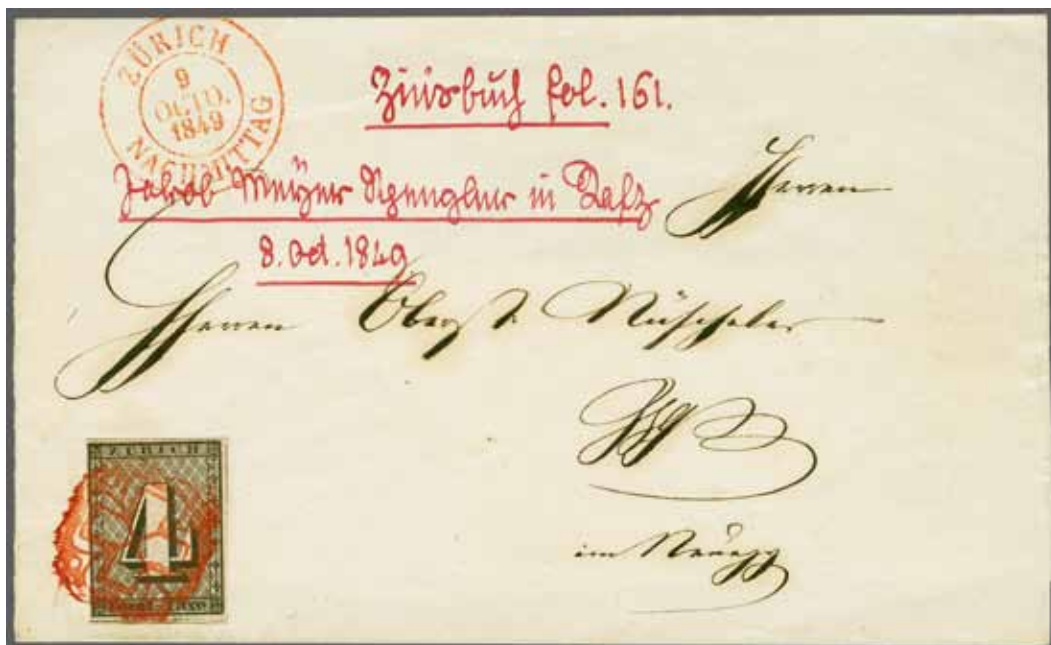 ZÜRICH
9
OCTO.
1849
NACHMITTAG
Zinsbuch fol. 161.
Jakob Meÿer Spengler in Rafz
8. Oct. 1849
Herren
Herren Oberst Nüscheler
im Neuegg
ZURICH
4
Local-Taxe